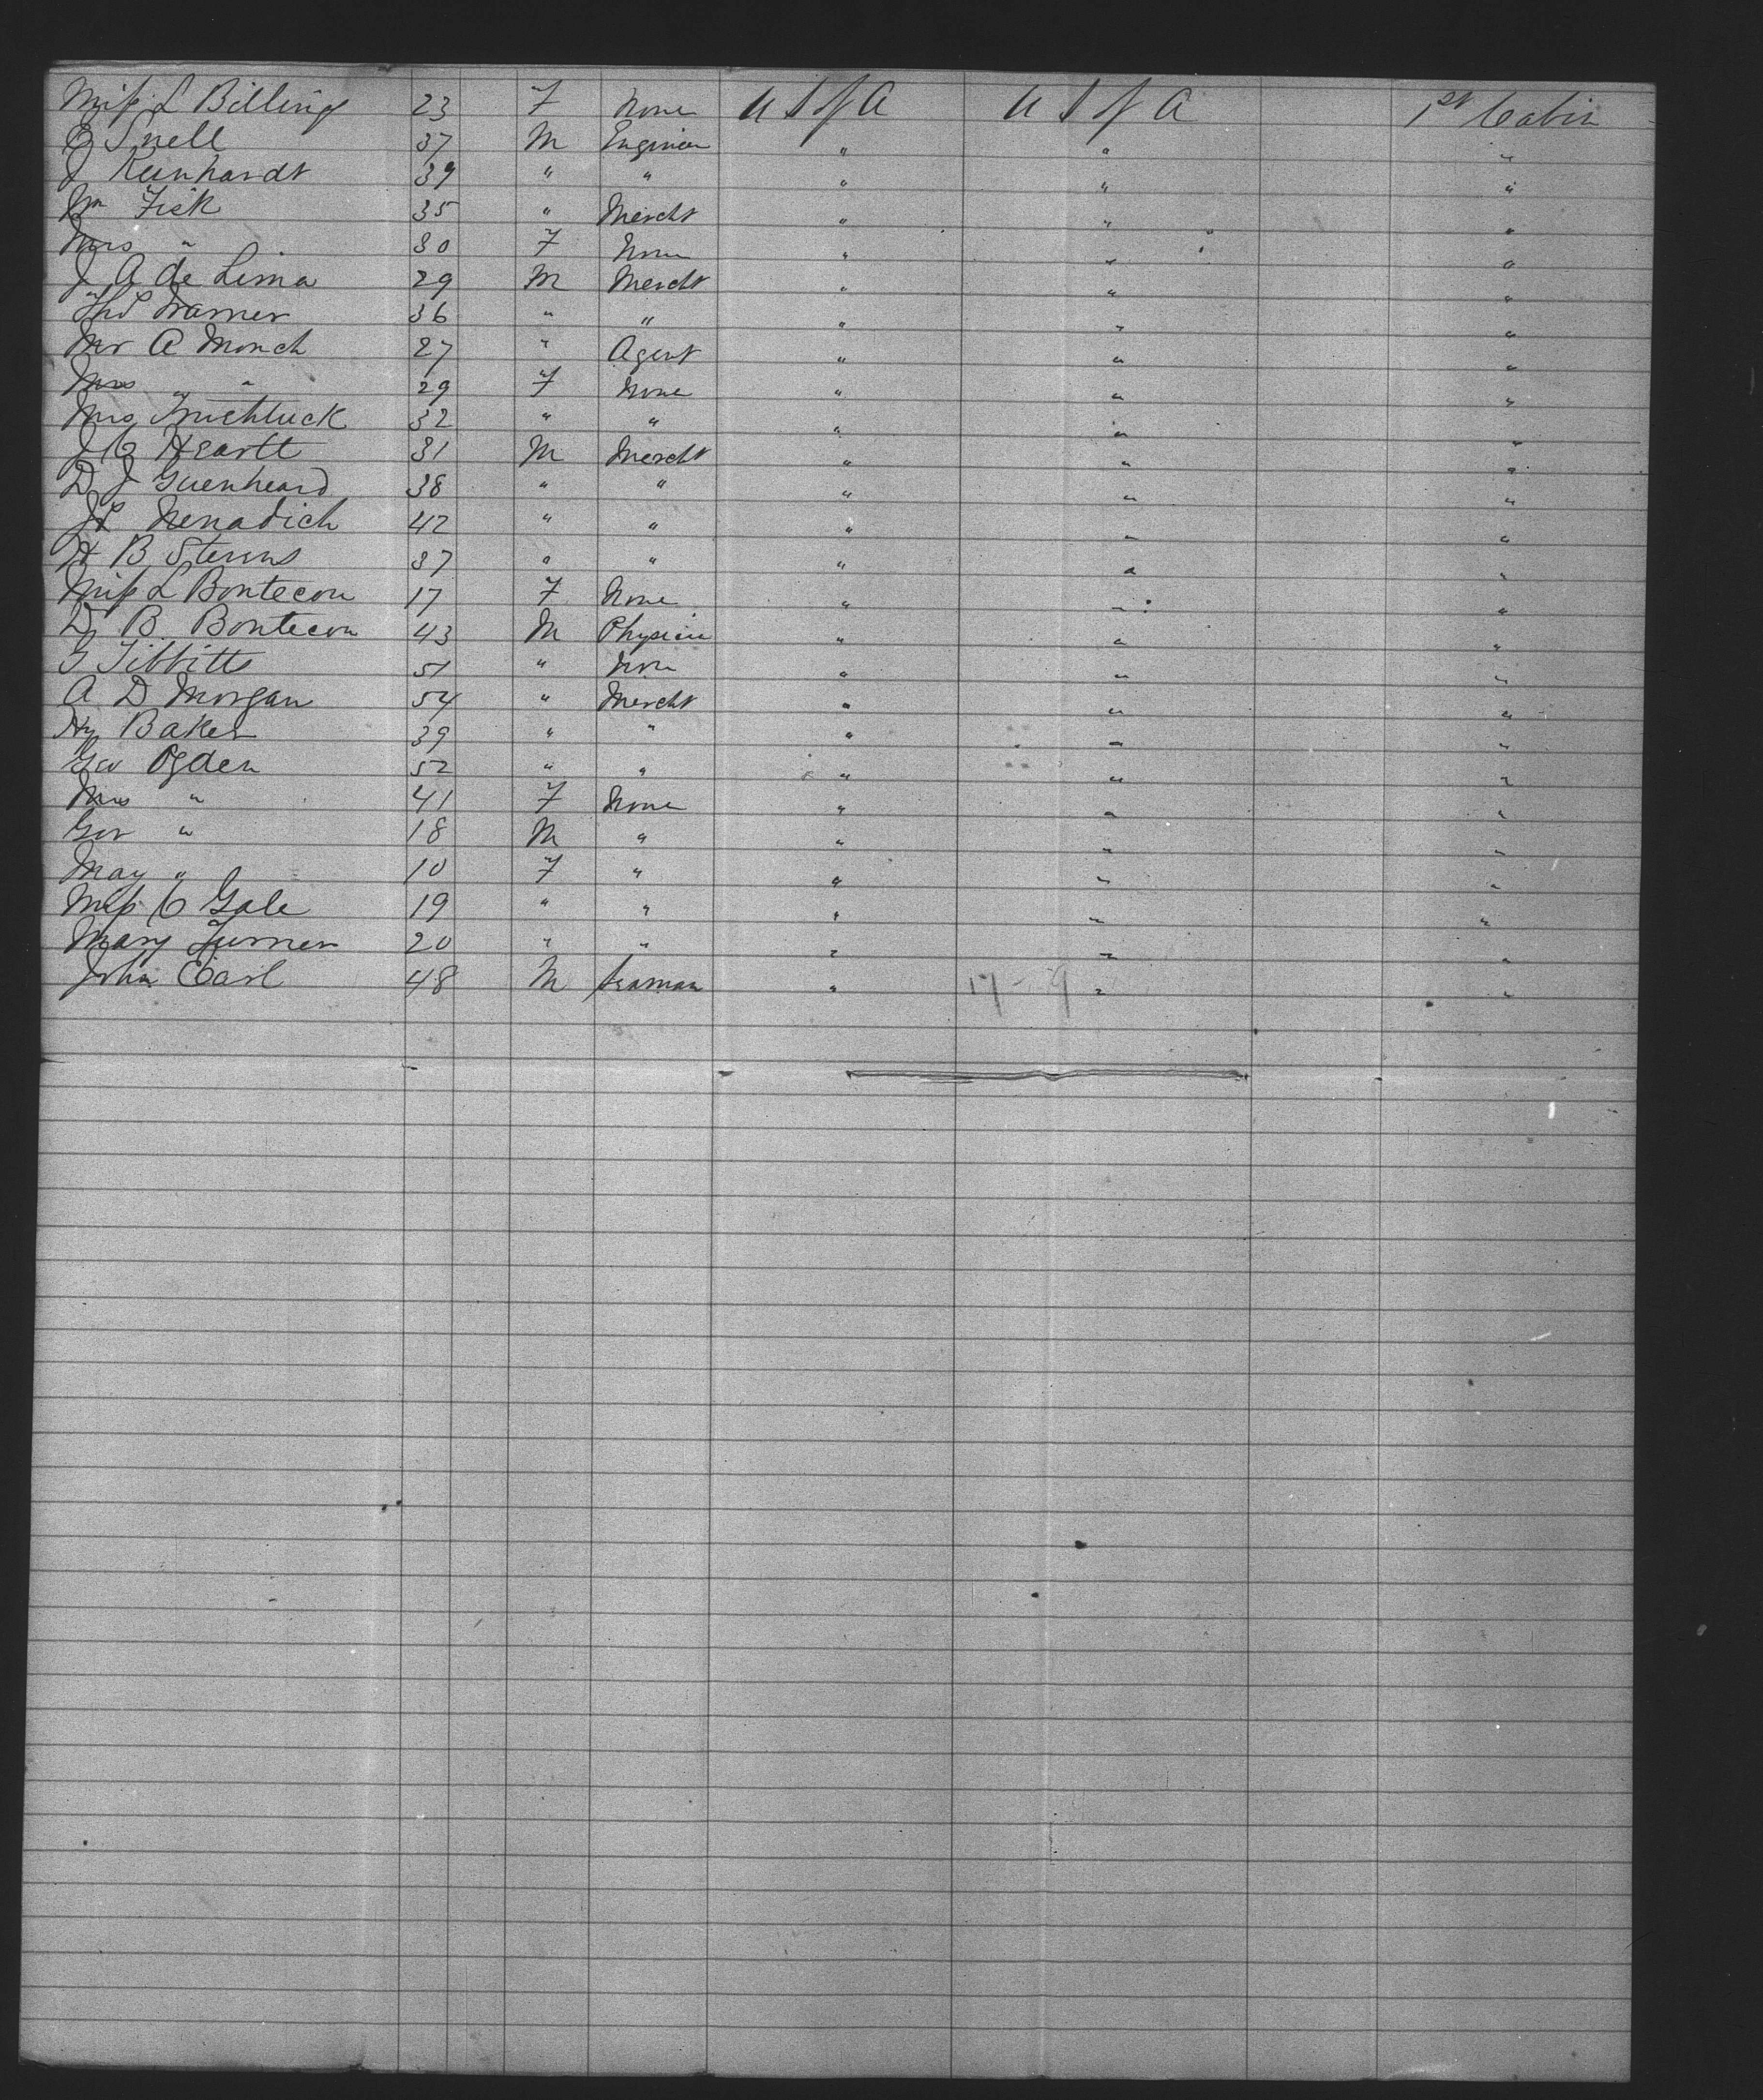 Miss L Billings 23 F None U S of A U S of A 1st Cabin
E Snell 37 M Engineer " " "
J Reinhardt 39 " " " " "
Wm Fick 35 " Mercht " " "
Mrs " 30 F None " " "
J A de Lima 29 M Mercht " " "
Thos Warner 36 " " " " "
Mr A Monch 27 " Agent " " "
Mrs " " 29 F None " " "
Mrs 32 " " " " "
J G Heartt 31 M Mercht " " "
D J Guenheard 38 " " " " "
Nenadich 42 " " " " "
H B Sterns 37 " " " " "
Miss L Bontecou 17 F None " " "
Dr B Bontecou 43 M Physician " " "
G Tibbitts 51 " None " " "
A D Morgan 54 " Mercht " " "
Hy Baker 39 " " " " "
Geo Ogden 52 " " " " "
Mrs " 41 F None " " "
Geo " 18 M " " " "
May " 10 F " " " "
Miss C Gale 19 " " " " "
Mary Turner 20 " " " " "
John Earl 48 M Seaman " " "